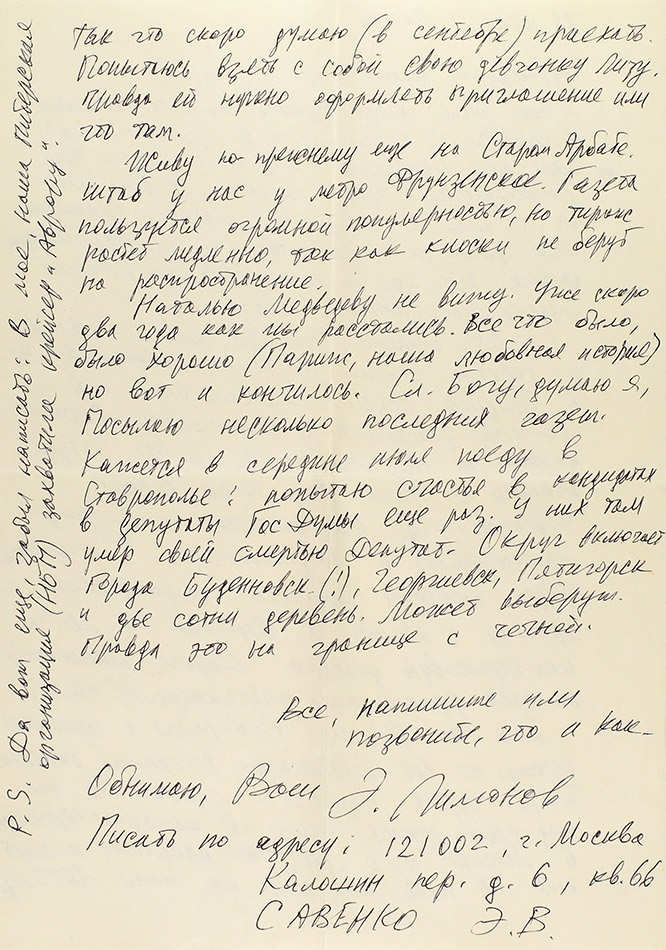 так что скоро думаю (в сентябре) приехать.
Попытаюсь взять с собой свою девчонку Лизу.
Правда ей нужно оформлять приглашение или
что там.
Живу по-прежнему еще на Старом Арбате.
Штаб у нас у метро Фрунзенское. Газета
пользуется огромной популярностью, но тираж
растет медленно, так как киоски не берут
на распространение.
Наталью Медведеву не вижу. Уже скоро
два года как мы расстались. Все что было,
было хорошо (Париж, наша любовная история)
но вот и кончилось. Сл. Богу, думаю я,
Посылаю несколько последних газет.
Кажется в середине июля поеду в
Ставрополье: попытаю счастья в кандидатах
в депутаты ГосДумы еще раз. У них там
умер своей смертью Депутат. Округ включает
города Буденновск (!), Георгиевск, Пятигорск
и две сотни деревень. Может выберут.
Правда это на границе с Чечней.
Все, напишите или
позвоните, что и как.
Обнимаю, Ваш Э. Лимонов
Писать по адресу: 121002, г. Москва
Калошин пер. д. 6, кв. 66
САВЕНКО Э.В.
P.S. Да вот еще, забыл написать: В мае, наша питерская
организация (НБП) захватила крейсер "Аврору".